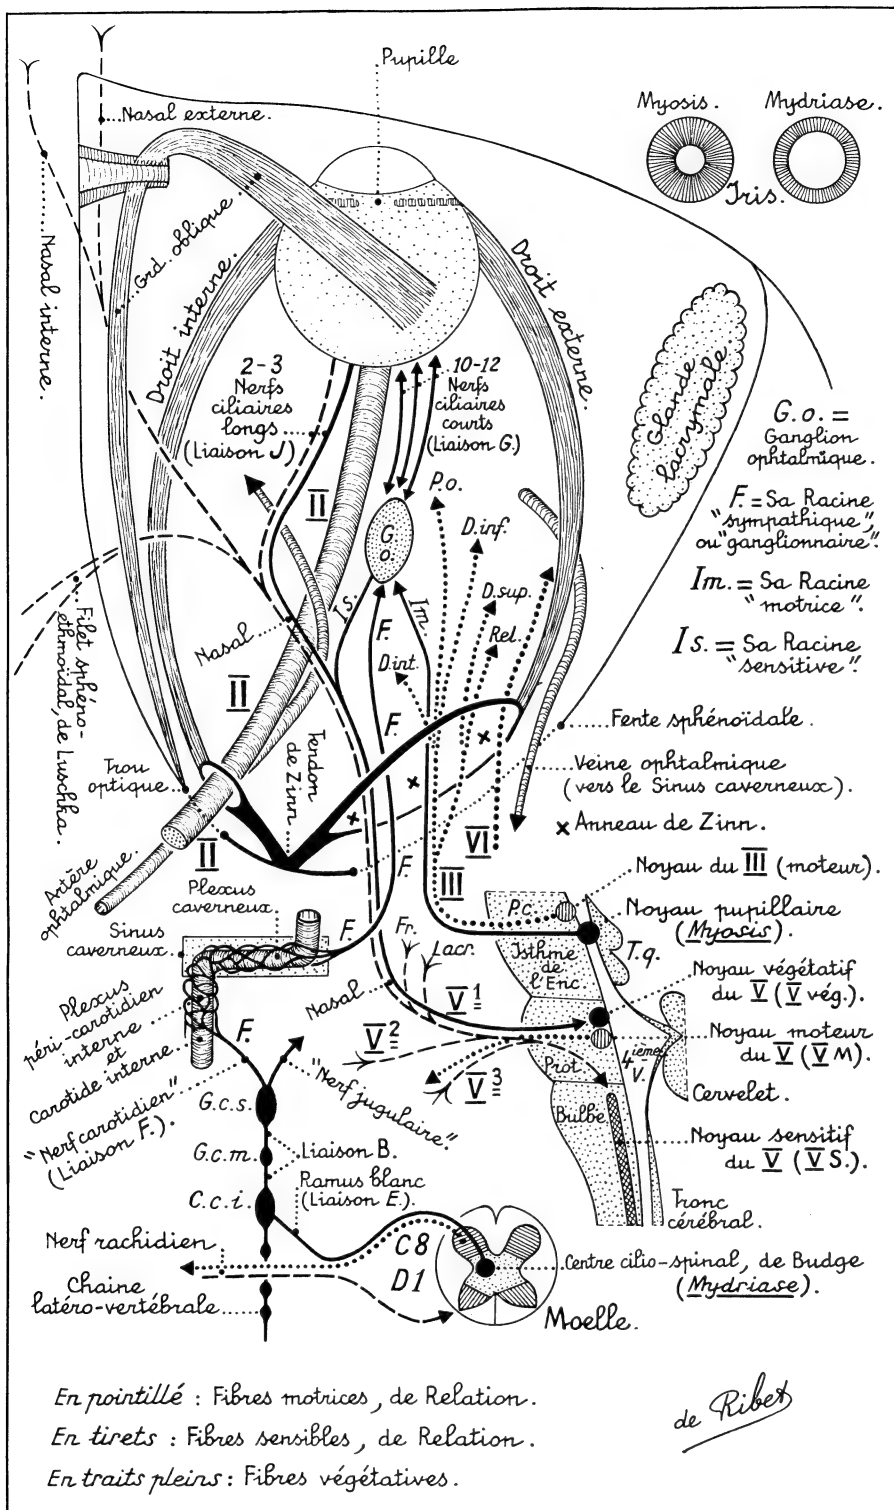 Pupille
Myosis.
Mydriase.
Iris.
Nasal externe.
Nasal interne.
Grd. oblique
Droit interne.
Droit externe.
Glande
lacrymale
2-3
Nerfs
ciliaires
longs
(Liaison J)
10-12
Nerfs
ciliaires
courts
(Liaison G.)
G.o. =
Ganglion
ophtalmique.
F. = Sa Racine
"sympathique",
ou "ganglionnaire".
Im. = Sa Racine
"motrice".
Is. = Sa Racine
"sensitive".
II
P.o.
D.inf.
G.
o.
D.sup.
Rel.
Is.
F.
Im.
D.int.
Nasal
II
Filet sphéno-
ethmoïdal, de Luschka.
F.
Tendon
de Zinn
Fente sphénoïdale.
Trou
optique
Veine ophtalmique
(vers le Sinus caverneux).
x Anneau de Zinn.
II
VI
III
F.
Artère
ophtalmique.
Plexus
caverneux
Sinus
caverneux
F.
Noyau du III (moteur).
P.c.
Noyau pupillaire
(Myosis).
T.q.
Isthme
de
l'Enc.
Fr.
Lacr.
Nasal
V1
V2
V3
Noyau végétatif
du V (V vég.).
Noyau moteur
du V (V M).
4ième
V.
Prot.
Bulbe
Cervelet.
Noyau sensitif
du V (V S.).
Tronc
cérébral.
Plexus
péri-carotidien
interne
et
carotide interne
F.
"Nerf carotidien"
(Liaison F.).
"Nerf jugulaire".
G.c.s.
G.c.m.
Liaison B.
Ramus blanc
(Liaison E.).
C.c.i.
Nerf rachidien
C8
D1
Chaine
latéro-vertébrale
Centre cilio-spinal, de Budge
(Mydriase).
Moelle.
En pointillé : Fibres motrices, de Relation.
En tirets : Fibres sensibles, de Relation.
En traits pleins : Fibres végétatives.
de Ribet